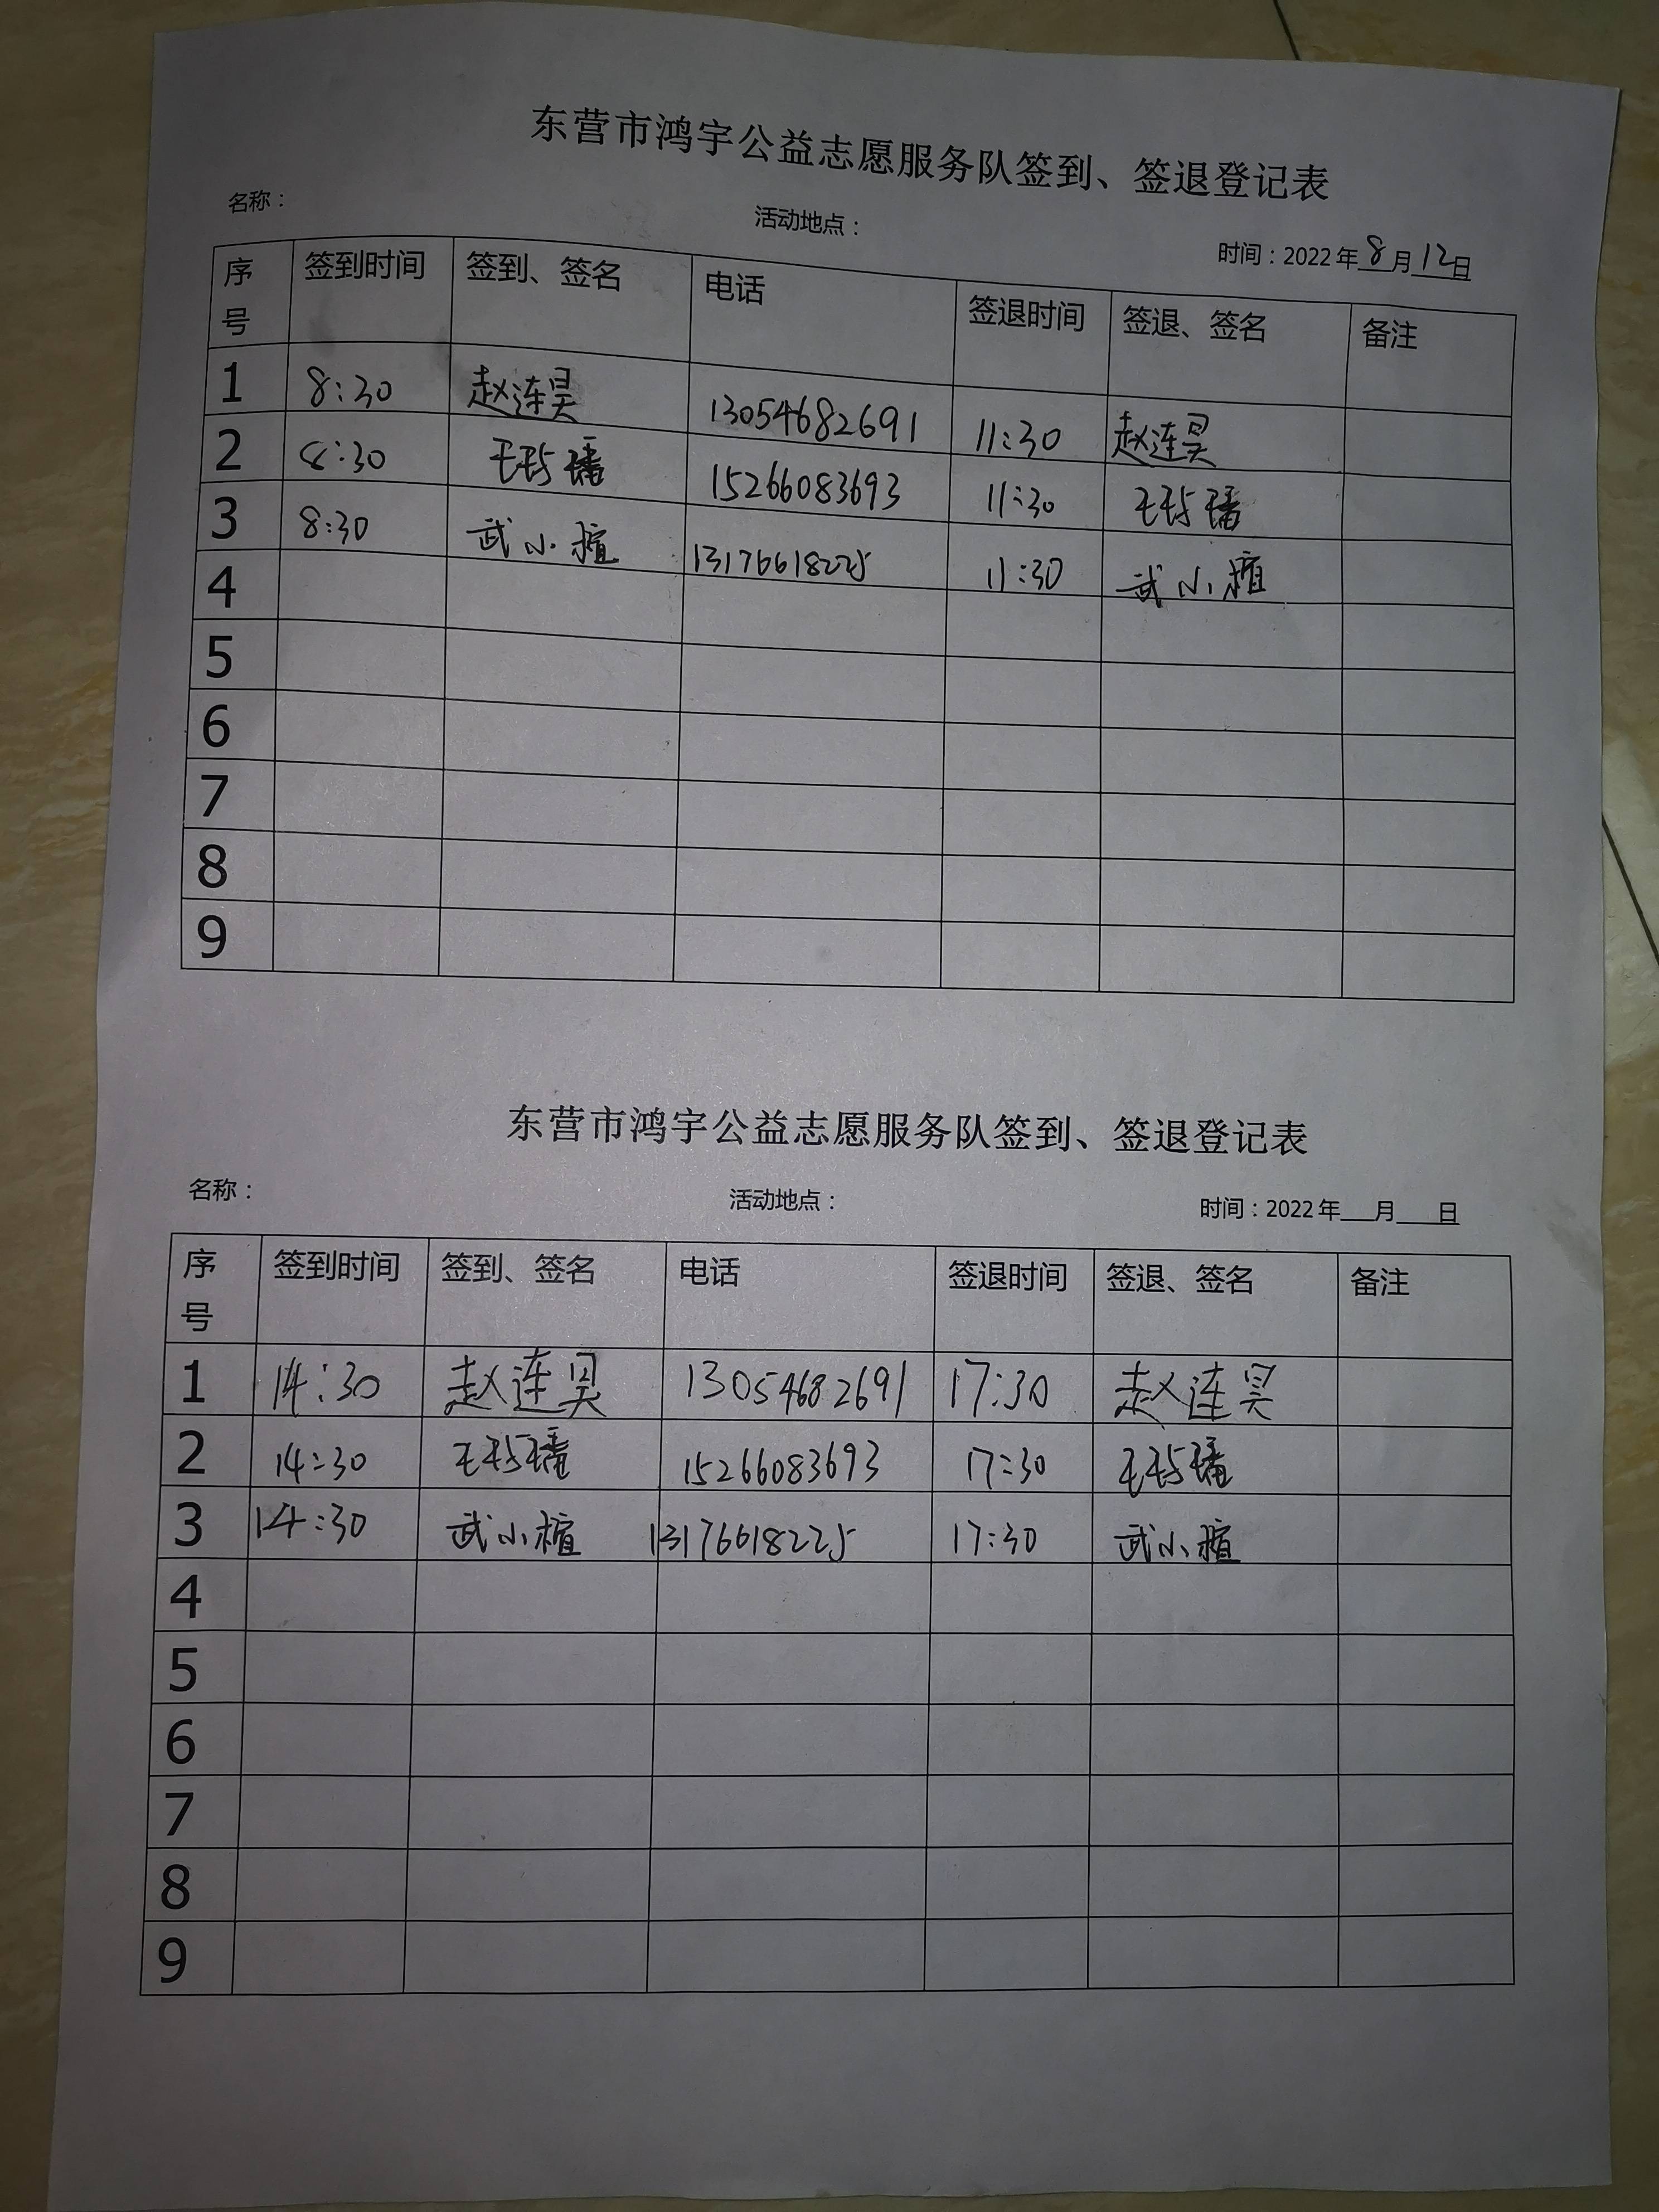 东营市鸿宇公益志愿服务队签到、签退登记表
名称： 活动地点： 时间：2022年8月12日
序号 签到时间 签到、签名 电话 签退时间 签退、签名 备注
1 8:30 赵连昊 13054682691 11:30 赵连昊
2 8:30 15266083693 11:30
3 8:30 武小楦 13176618225 11:30 武小楦
4
5
6
7
8
9
东营市鸿宇公益志愿服务队签到、签退登记表
名称： 活动地点： 时间：2022年___月___日
序号 签到时间 签到、签名 电话 签退时间 签退、签名 备注
1 14:30 赵连昊 13054682691 17:30 赵连昊
2 14:30 15266083693 17:30
3 14:30 武小楦 13176618225 17:30 武小楦
4
5
6
7
8
9